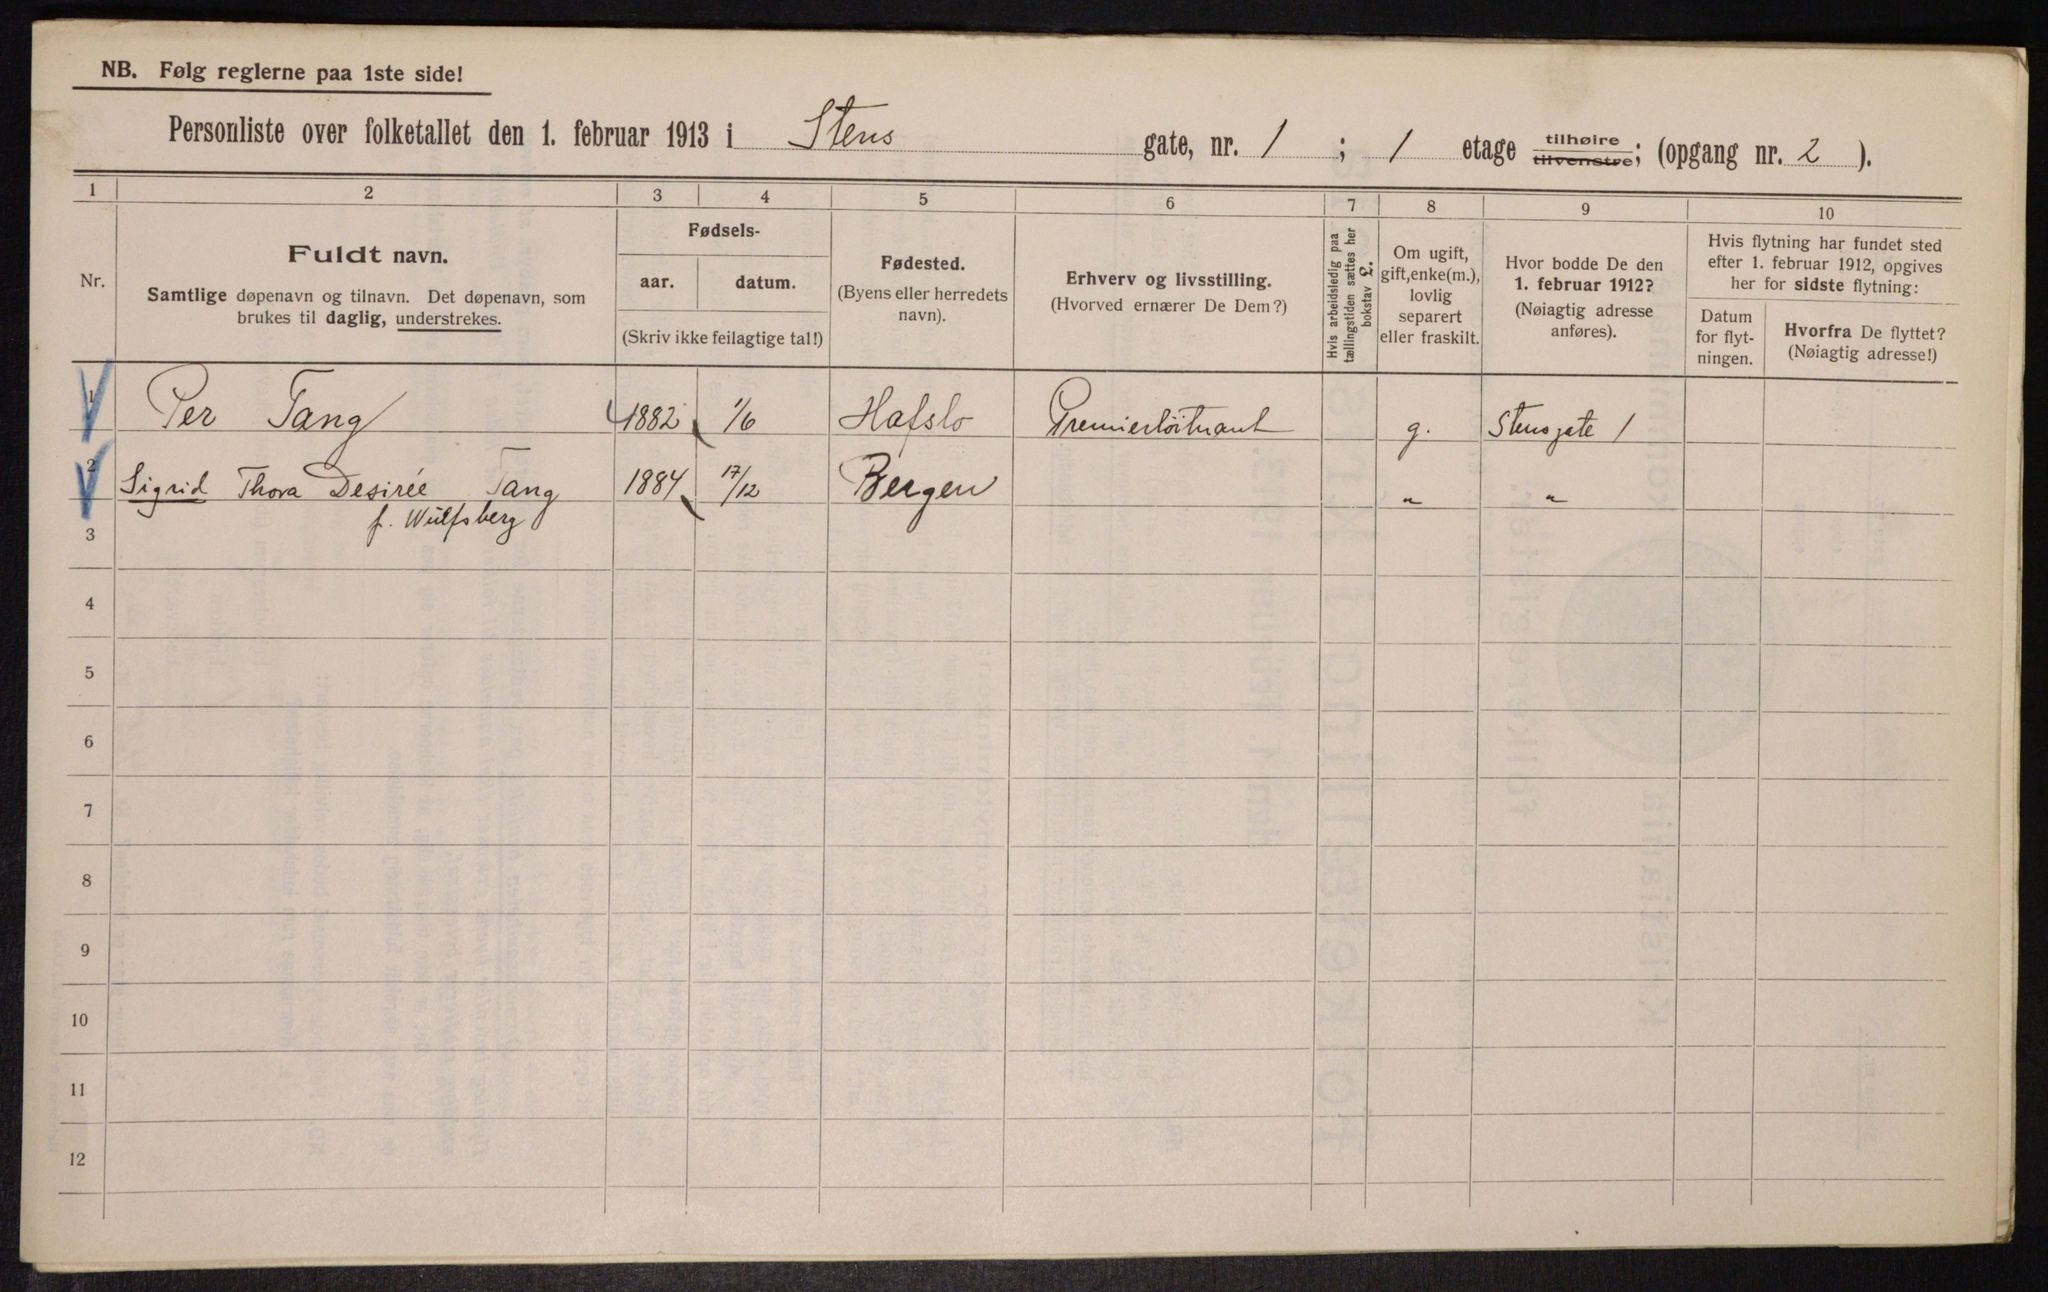 NB. Følg reglerne paa 1ste side!
Personliste over folketallet den 1. februar 1913 i Stens gate, nr. 1 ; 1 etage tilhøire tilvenstre; (opgang nr. 2 ).
1 2 3 4 5 6 7 8 9 10
Nr.
Fuldt navn.
Samtlige døpenavn og tilnavn. Det døpenavn, som
brukes til daglig, understrekes.
Fødsels-
aar. datum.
(Skriv ikke feilagtige tal!)
Fødested.
(Byens eller herredets
navn).
Erhverv og livsstilling.
(Hvorved ernærer De Dem?)
Hvis arbeidsledig paa
tællingstiden sættes her
bokstav L.
Om ugift,
gift, enke(m.),
lovlig
separert
eller fraskilt.
Hvor bodde De den
1. februar 1912?
(Nøiagtig adresse
anføres).
Hvis flytning har fundet sted
efter 1. februar 1912, opgives
her for sidste flytning:
Datum
for flyt-
ningen.
Hvorfra De flyttet?
(Nøiagtig adresse!)
1 Per Tang 1882 1/6 Hafslo Premierløitnant g. Stensgate 1
2 Sigrid Thora Desirée Tang 1884 17/12 Bergen " "
f. Wulfsberg
3
4
5
6
7
8
9
10
11
12